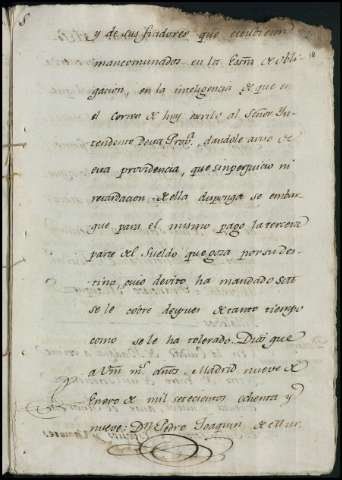 y de sus fiadores que estubieren
mancomunados en la Esrña de obli-
gacion, en la inteligencia de que en
el Correo de hoy escrivo al Señor Yn-
tendente de esta Prov.ª, dandole aviso de
esta providencia, que sin perjuicio ni
retardacion de ella disponga se embar-
gue para el mismo pago la tercera
parte del Sueldo que goza por su des-
tino, cuio devito ha mandado
se le cobre despues de tanto tiempo
como se le ha tolerado. Dios gue
a Vm m.s años. Madrid nueve de
Enero de mil setecientos ochenta y
nueve. Dn Pedro Joaquin de Mur.